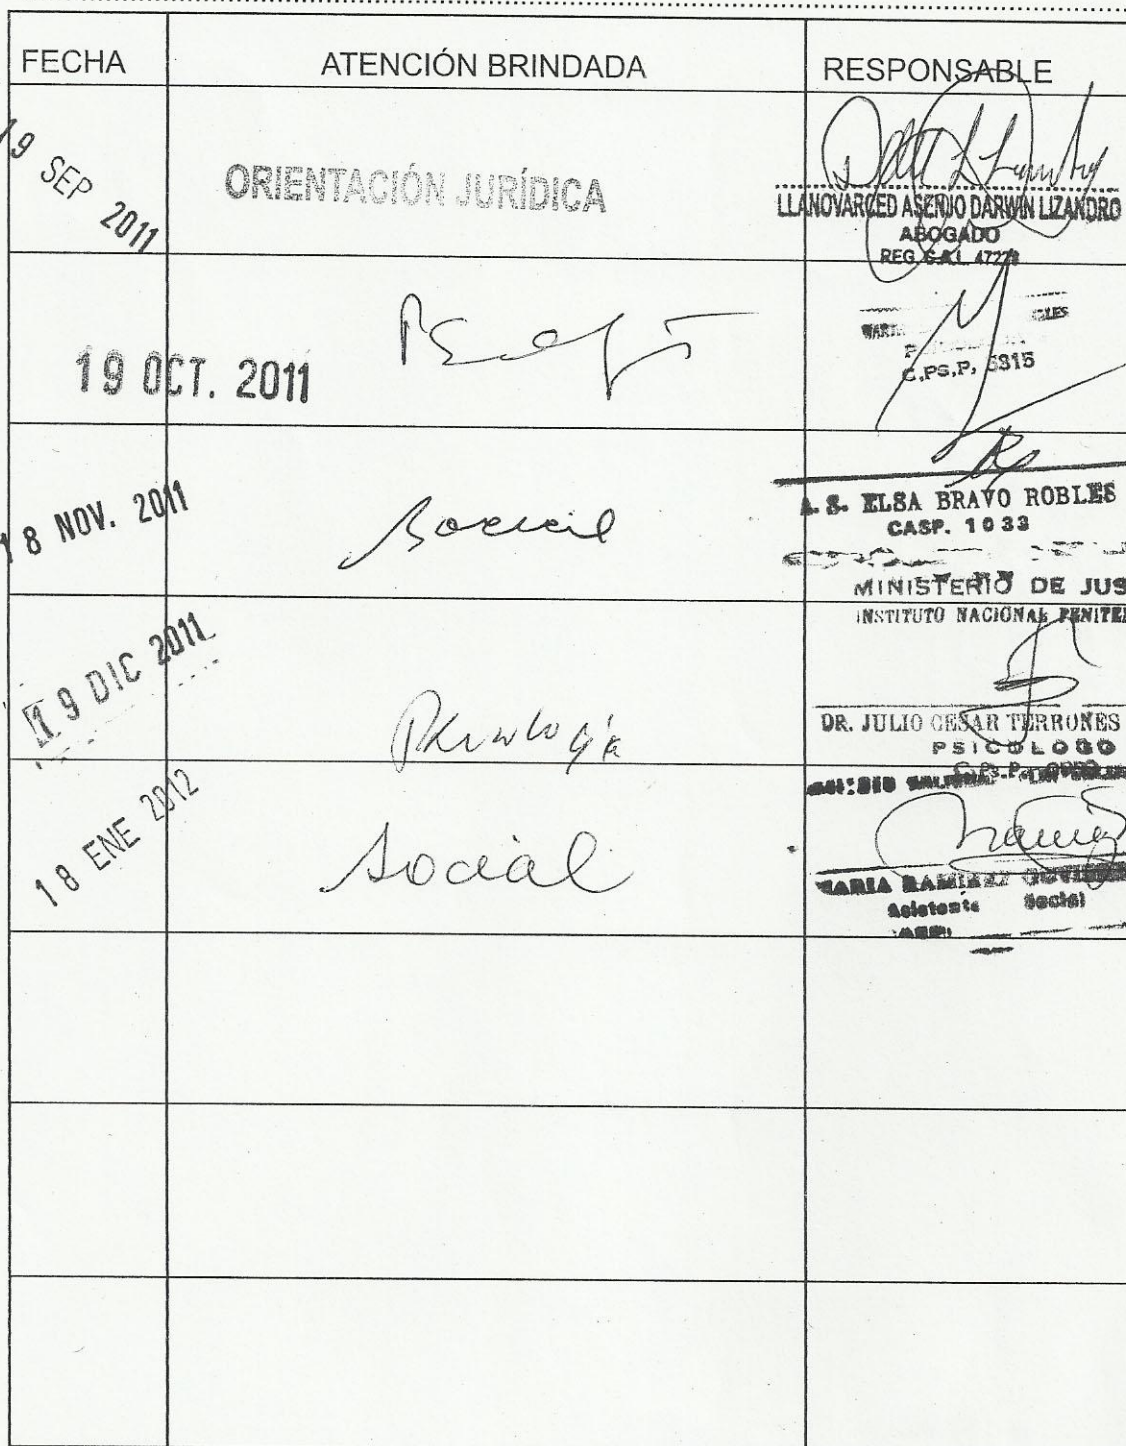 FECHA ATENCIÓN BRINDADA RESPONSABLE
19 SEP 2011 ORIENTACIÓN JURÍDICA
LLANOVARCED ASENJO DARWIN LIZANDRO
ABOGADO
REG. C.A.L. 47278
19 OCT. 2011
C.Ps.P. 5315
18 NOV. 2011 Social
A. S. ELSA BRAVO ROBLES
CASP. 1033
MINISTERIO DE JUS
INSTITUTO NACIONAL PENITE
19 DIC 2011 Psicología
DR. JULIO CESAR TERRONES
PSICOLOGO
C.Ps.P.
18 ENE 2012 Social
MARIA RAMIREZ
Asistente Social